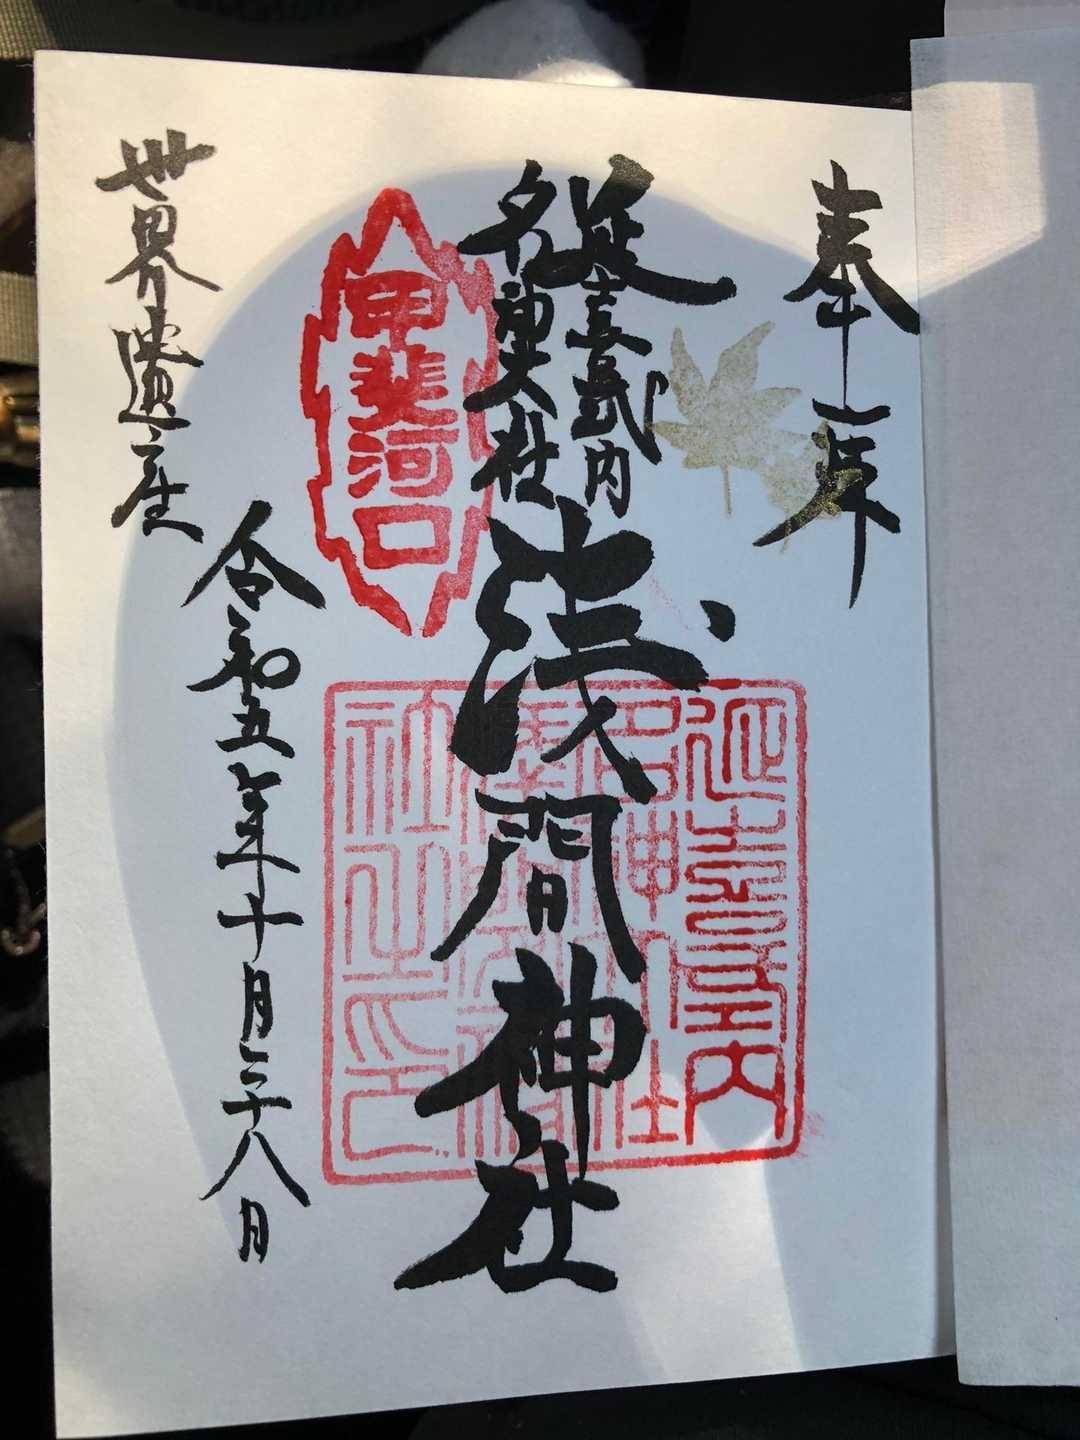 奉拝
延喜式内
名神大社
浅間神社
甲斐河口
延喜式内
名神大社
社之印
令和五年十月二十八日
世界遺産